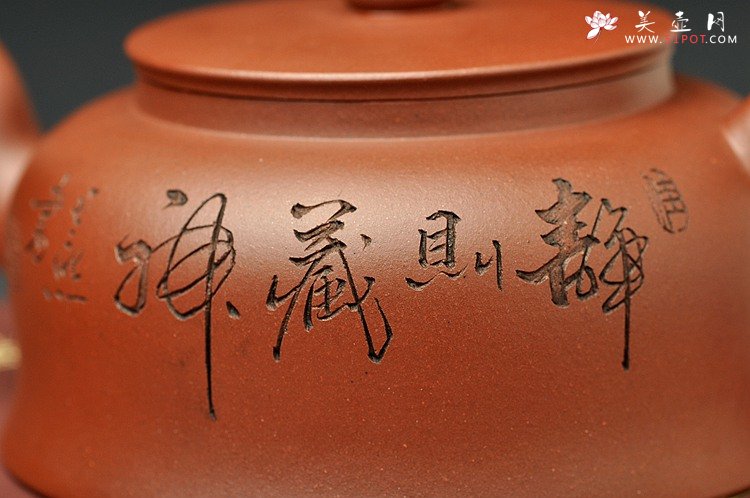 静则藏神
美壶网
WWW.51POT.COM